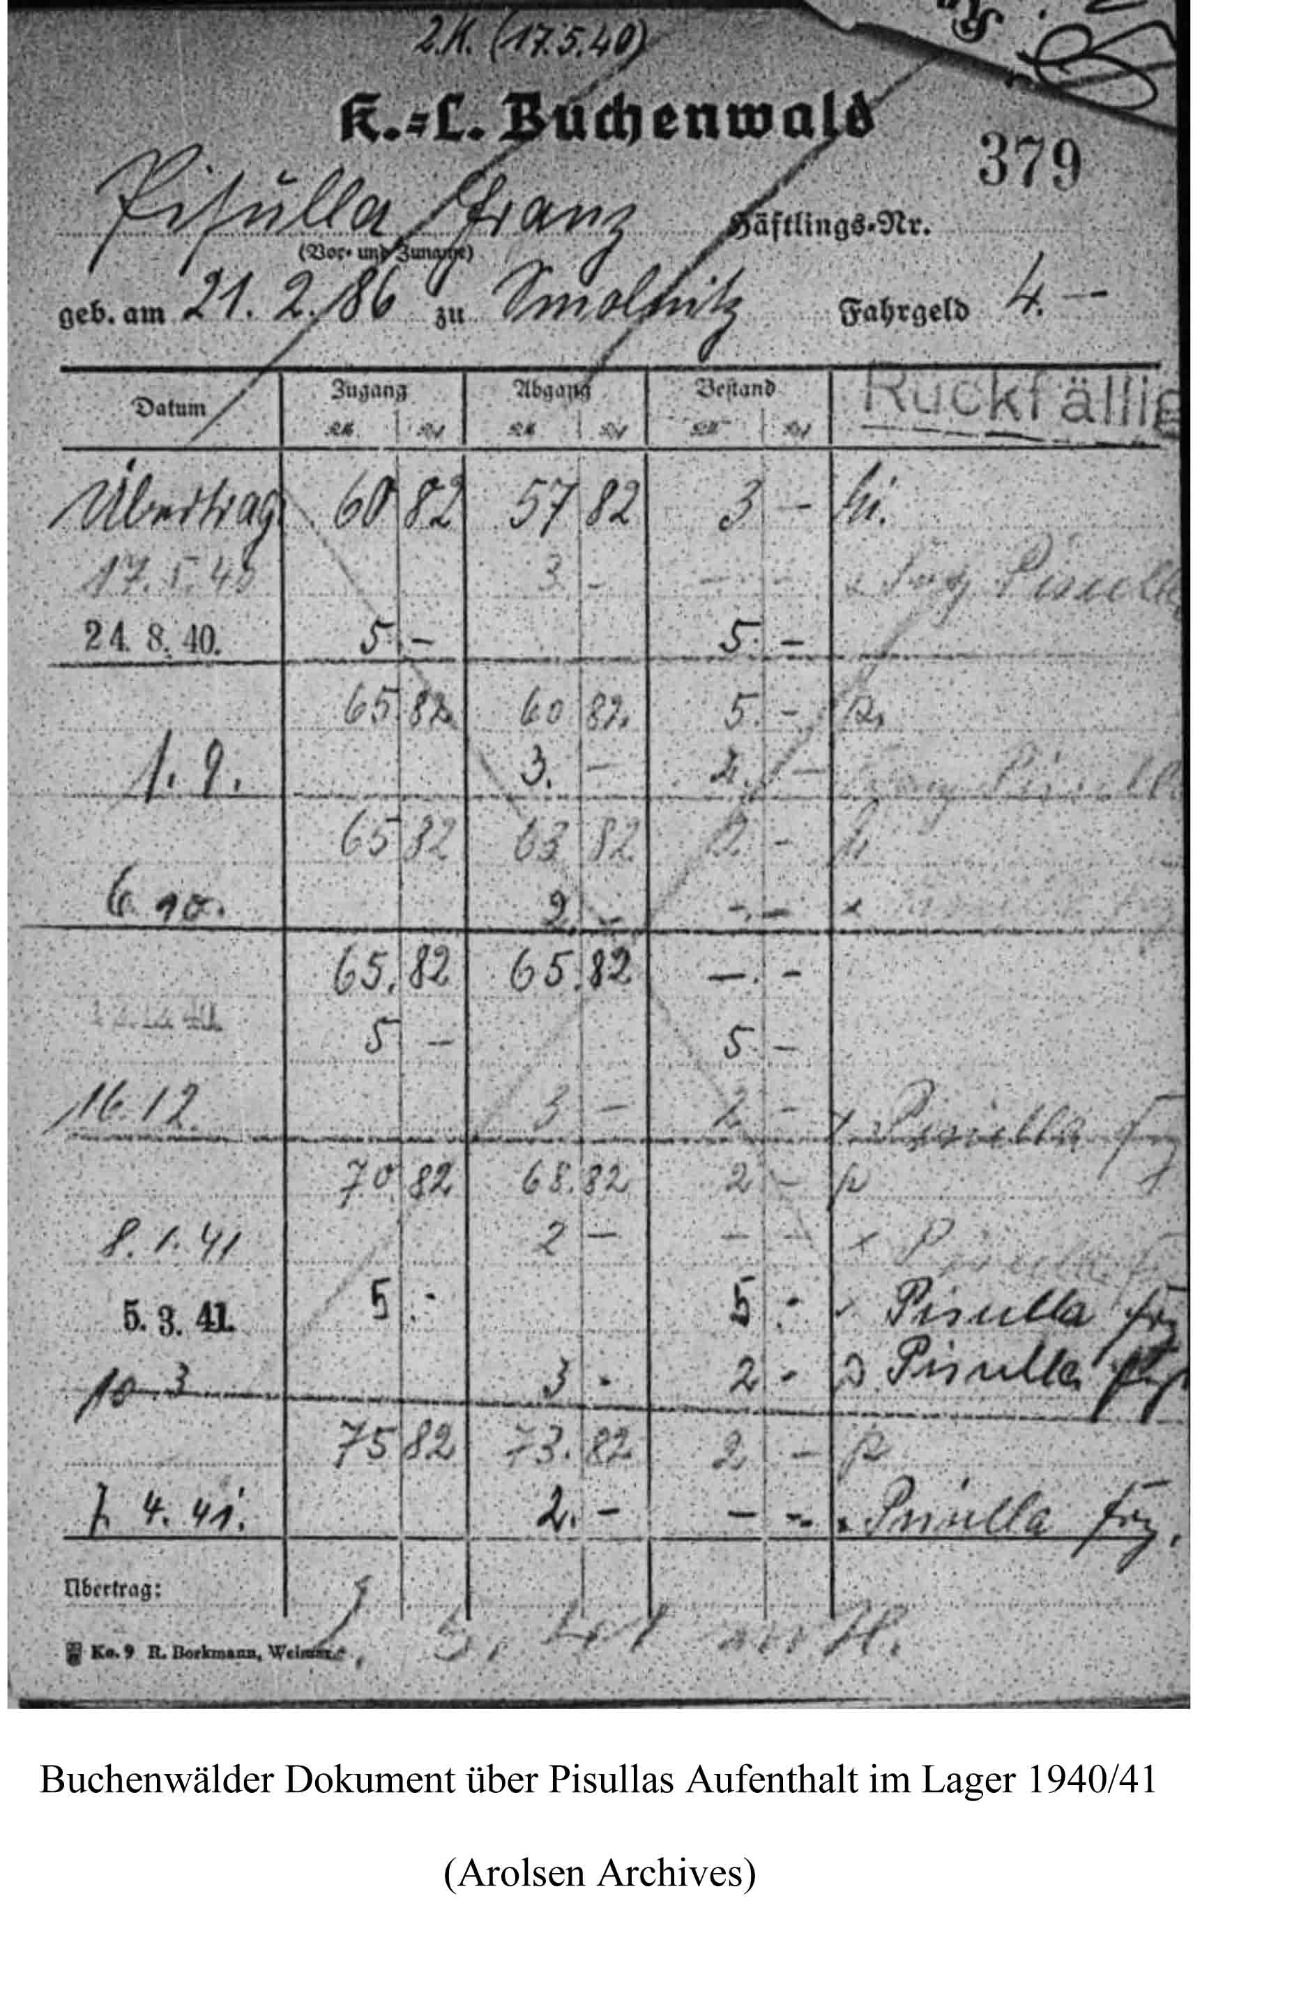 2.K. (17.5.40)
K.=L. Buchenwald
379
Pisulla Franz Häftlings=Nr.
(Vor= und Zuname)
geb. am 21. 2. 86 zu Smolnitz Fahrgeld 4. —
Datum Zugang Abgang Bestand Rückfällig
Übertrag 60 82 57 82 3 –
17. 5. 40 3 – – – Pisulla
24. 8. 40. 5 – 5 –
65. 82 60 82. 5. –
1. 9. 3. – 2. – Pisulla
65 82 63 82 2 –
6. 10. 2 – – –
65. 82 65. 82 – . –
5 – 5 –
16. 12. 3 – 2 – Pisulla
70. 82 68. 82 2 –
8. 1. 41 2 – – –
5. 3. 41. 5 . – 5 . – Pisulla
10. 3 3 – 2 – Pisulla
75 82 73. 82 2 –
7. 4. 41. 2. – – – Pisulla
Übertrag:
Ko. 9 R. Borkmann, Weimar
Buchenwälder Dokument über Pisullas Aufenthalt im Lager 1940/41
(Arolsen Archives)